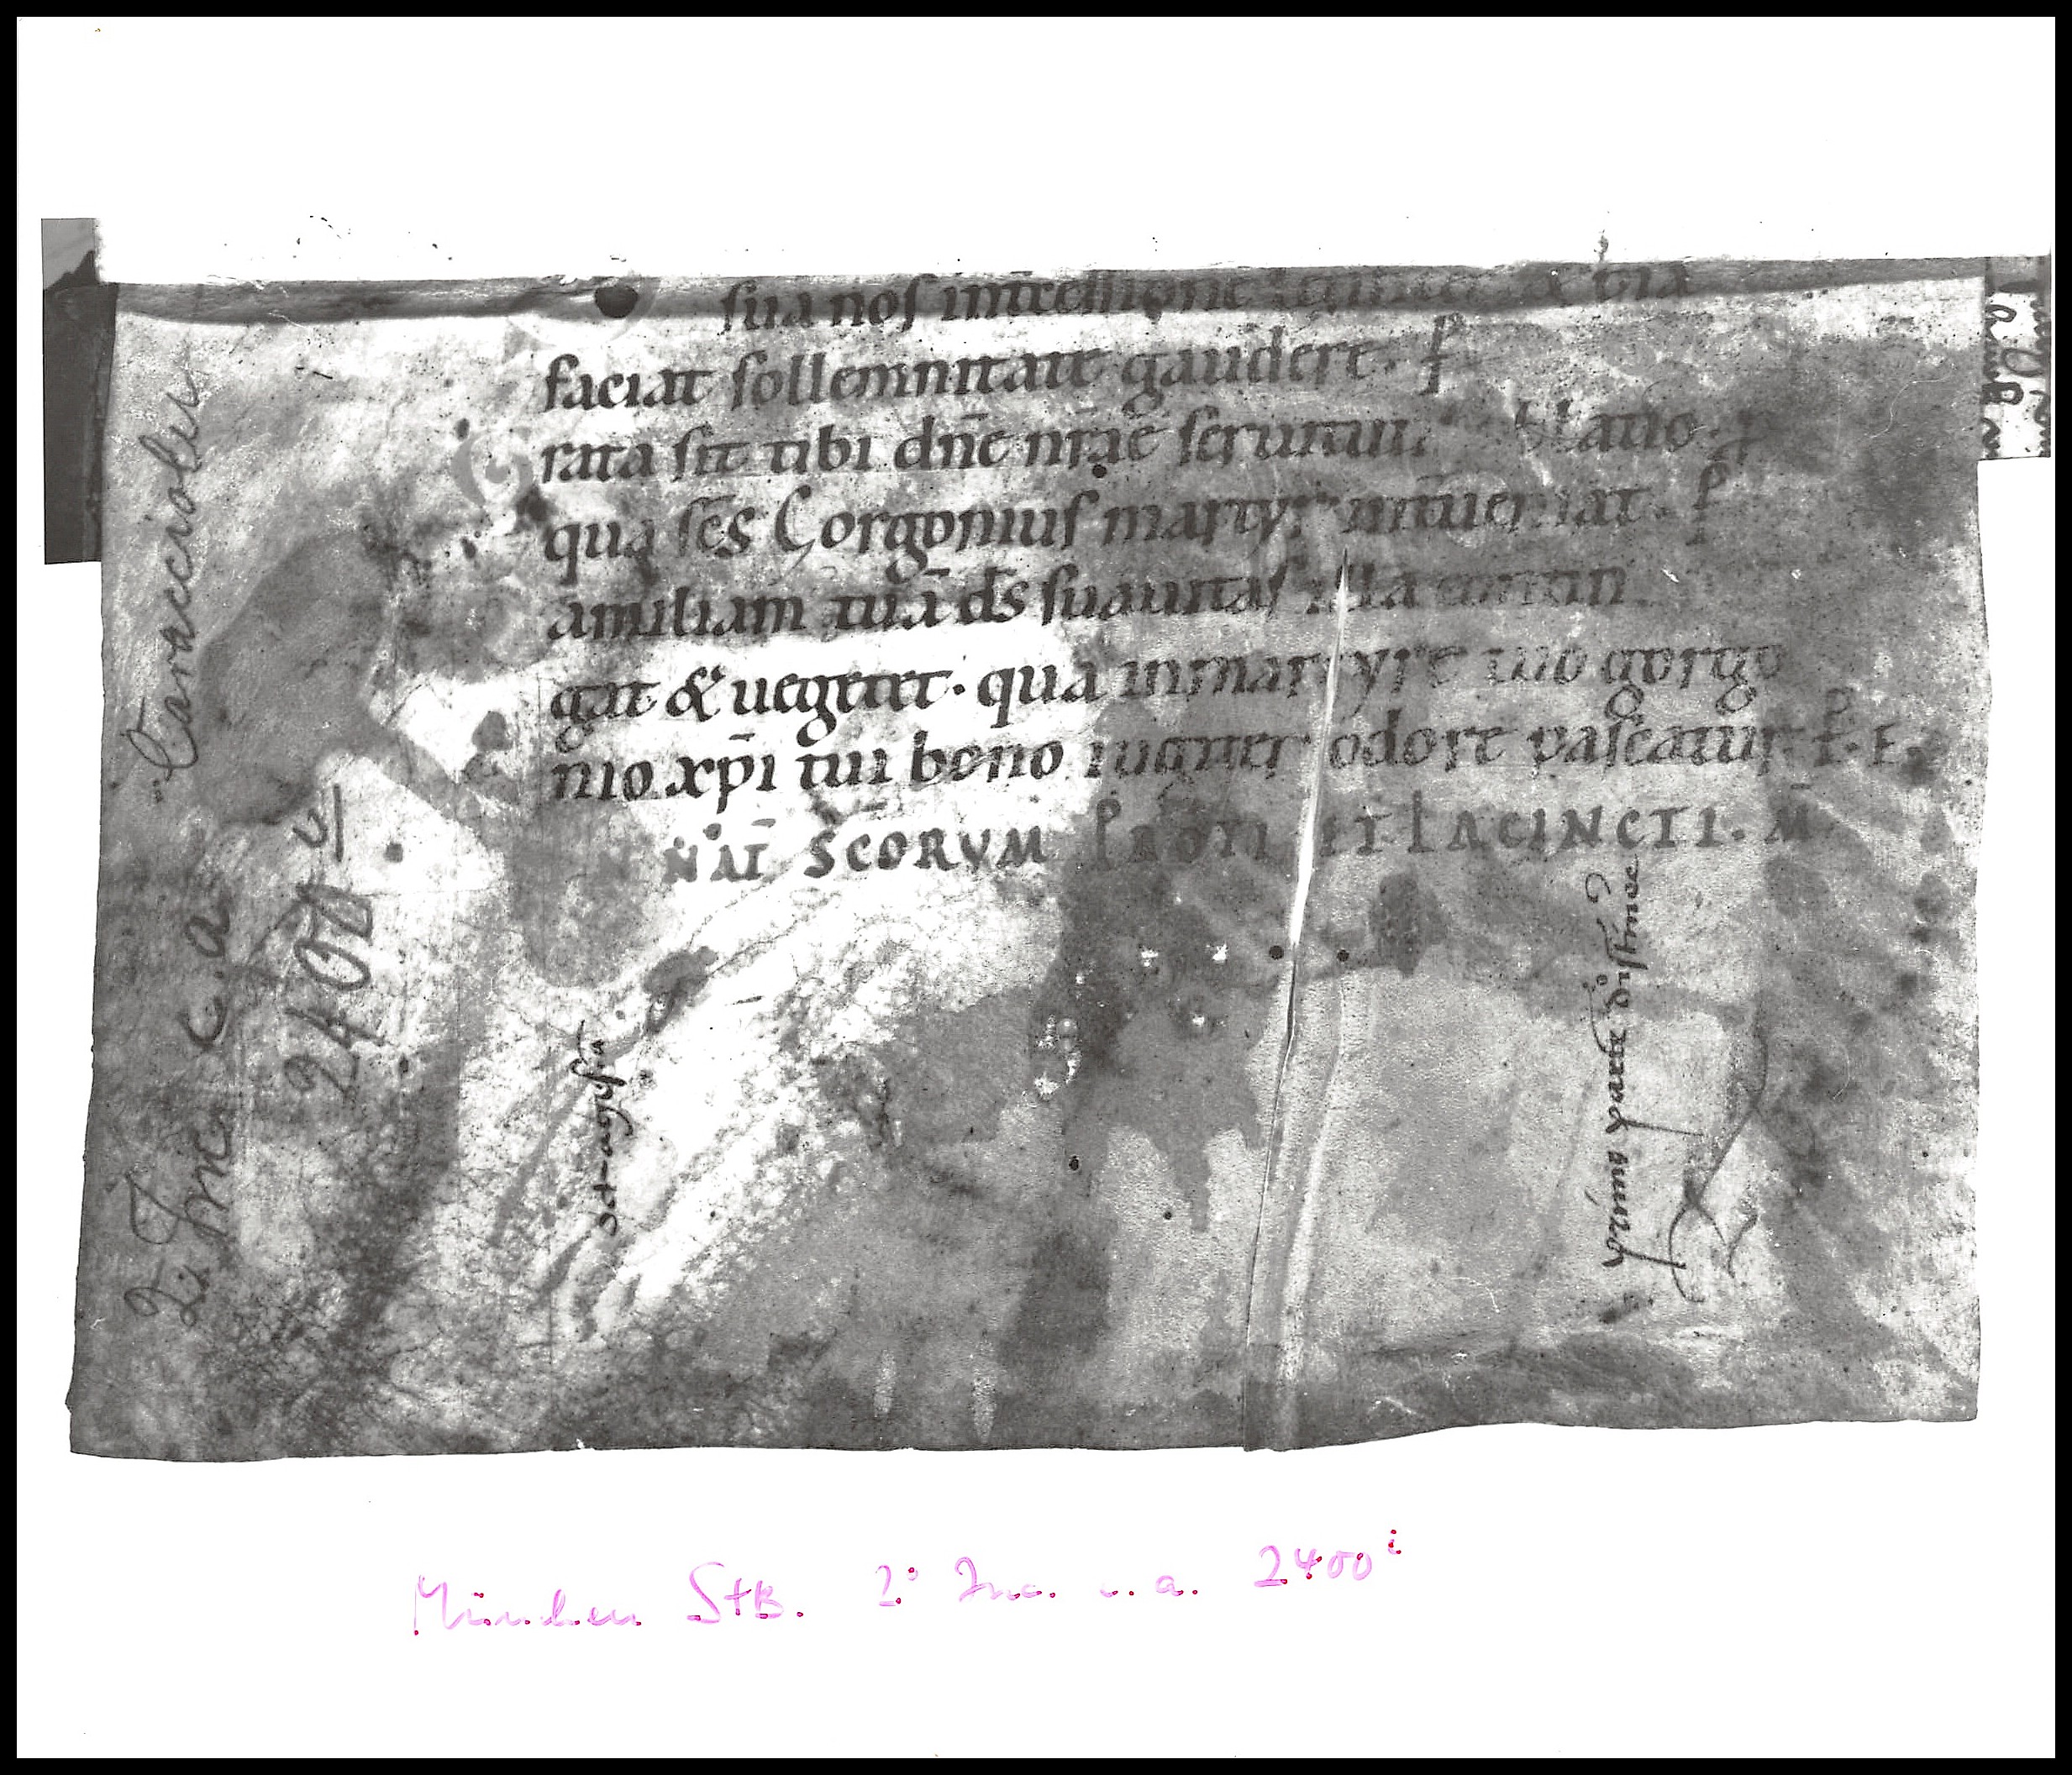 sua nos int̄cessione & pia
faciat sollemnitate gaudere. P̄
rata sit tibi dn̄e nr̄ae seruitutis oblatio. P
qua sc̄s Gorgonius martyr int̄ueniat. P̄
amiliam tuā ds̄ suauitas illa contin
gat & uegetet. qua in martyre tuo gorgo
nio xp̄i tui bono iugiter odore pascatur. P̄. E.
NAT̄ SC̄ORVM PROTI ET IACINCTI. M̄
Caracciolus
2° Inc. c. a.
2400 i
München StB. 2° Inc. c. a. 2400 i